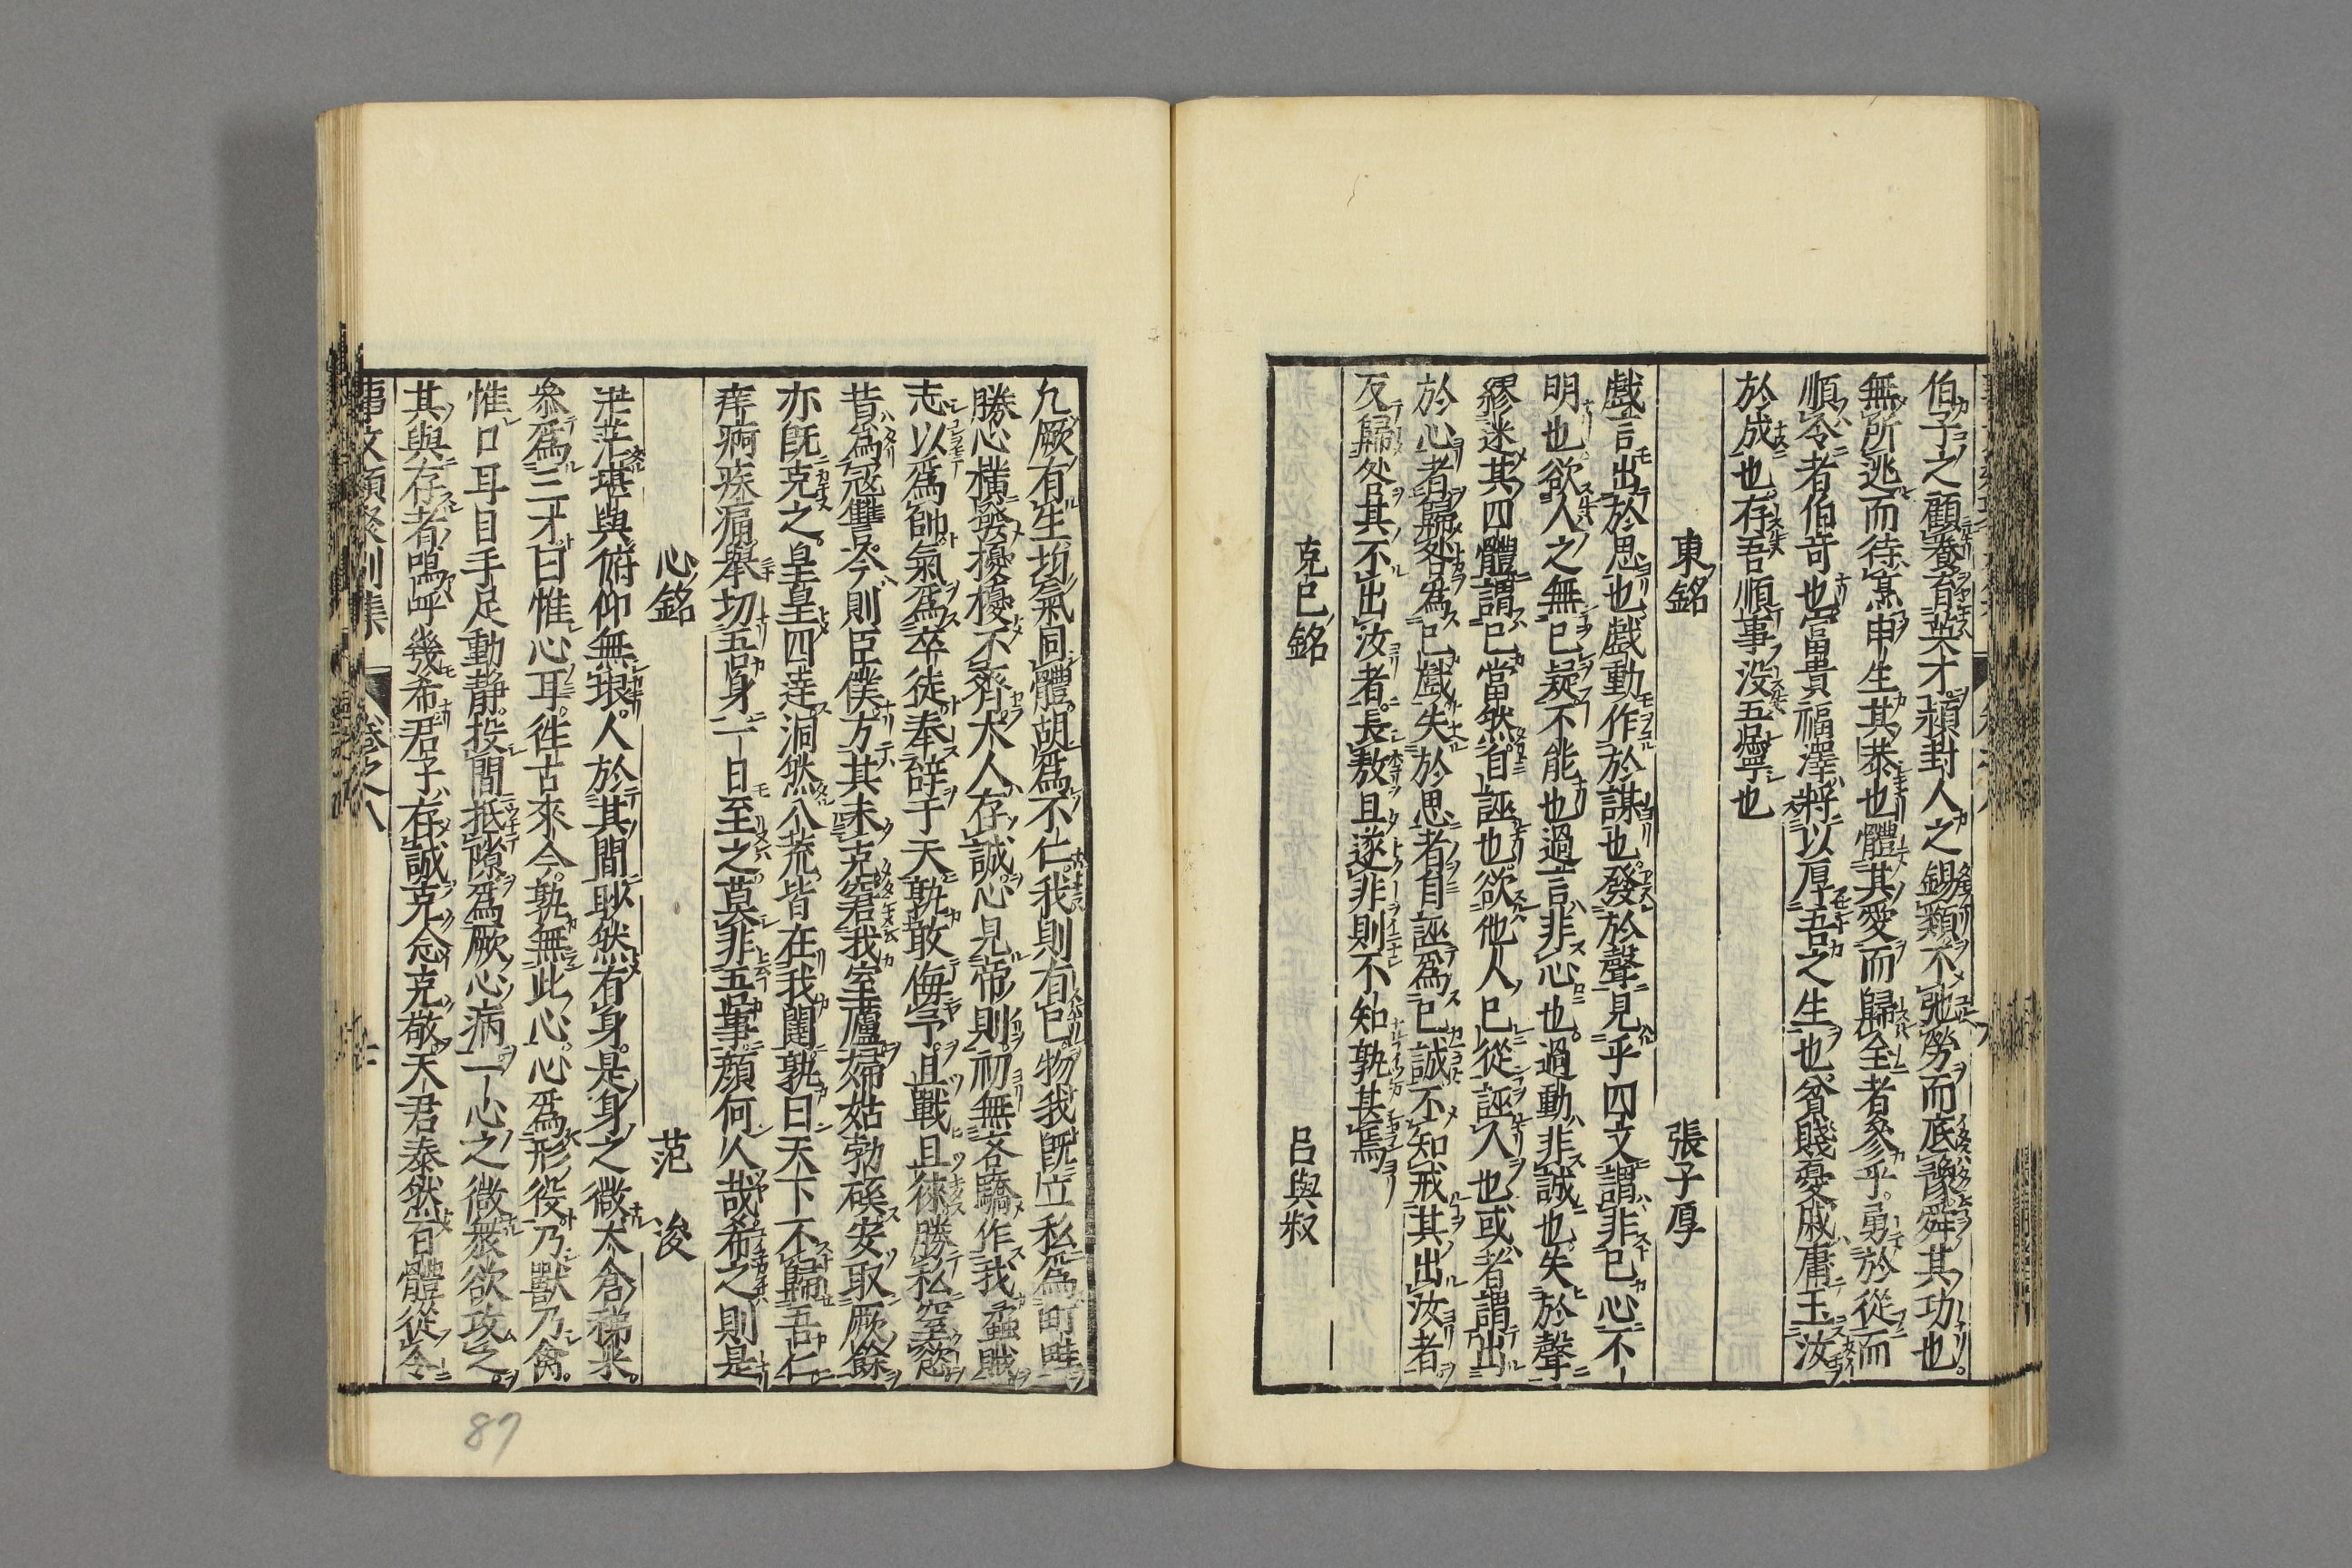 伯子之顧養育英才穎封人之錫類不弛勞而底豫舜其功也
無所逃而待烹申生其恭也體其愛而歸全者參乎勇於從而
順令者伯奇也富貴福澤將以厚吾之生也貧賤憂戚庸玉汝
於成也存吾順事没吾寧也
東銘　張子厚
戲言出於思也戲動作於謀也發於聲見乎四支謂非已心不
明也欲人之無已疑不能也過言非心也過動非誠也失於聲
繆迷其四體謂已當然自誣也欲他人已從誣人也或者謂出
於心者歸咎為已戲失於思者自誣為已誠不知戒其出汝者
反歸咎其不出汝者長敖且遂非則不知孰甚焉
克已銘　呂與叔
凢厥有生均氣同體胡爲不仁我則有已物我旣立私爲町畦
勝心橫發擾擾不齊大人存誠心見帝則初無吝驕作我蟊賊
志以爲帥氣爲卒徒奉辭于天孰敢侮予且戰且徠勝私窒慾
昔爲寇讐今則臣僕方其未克窘我室廬婦姑勃磎安取厥餘
亦旣克之皇皇四達洞然八荒皆在我闥孰曰天下不歸吾仁
痒痾疾痛舉切吾身一日至之莫非吾事顔何人哉希之則是
心銘　范浚
茫茫堪輿俯仰無垠人於其間眇然有身是身之微太倉稊米
叅爲三才曰惟心耳徃古來今孰無此心心爲形役乃獸乃禽
惟口耳目手足動静投間抵隙爲厥心病一心之微衆欲攻之
其與存者嗚呼幾希君子存誠克念克敬天君泰然百體從令
事文類聚別集　卷之八
87